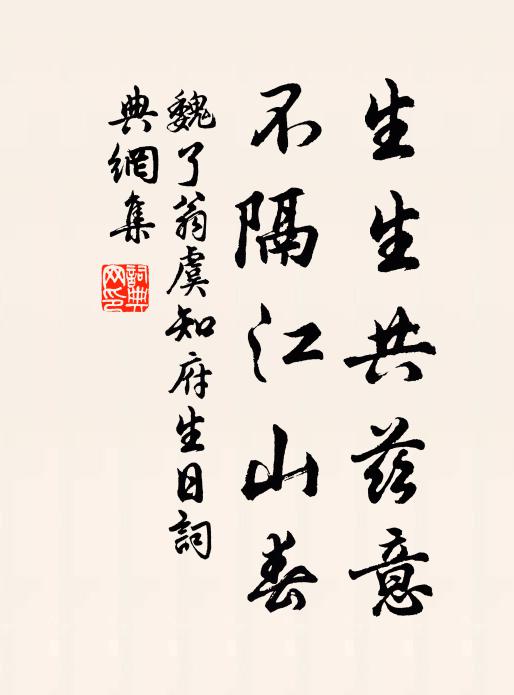 生生共茲意
不隔江山春
魏了翁虞知府生日詞
典網集
詞典
网印